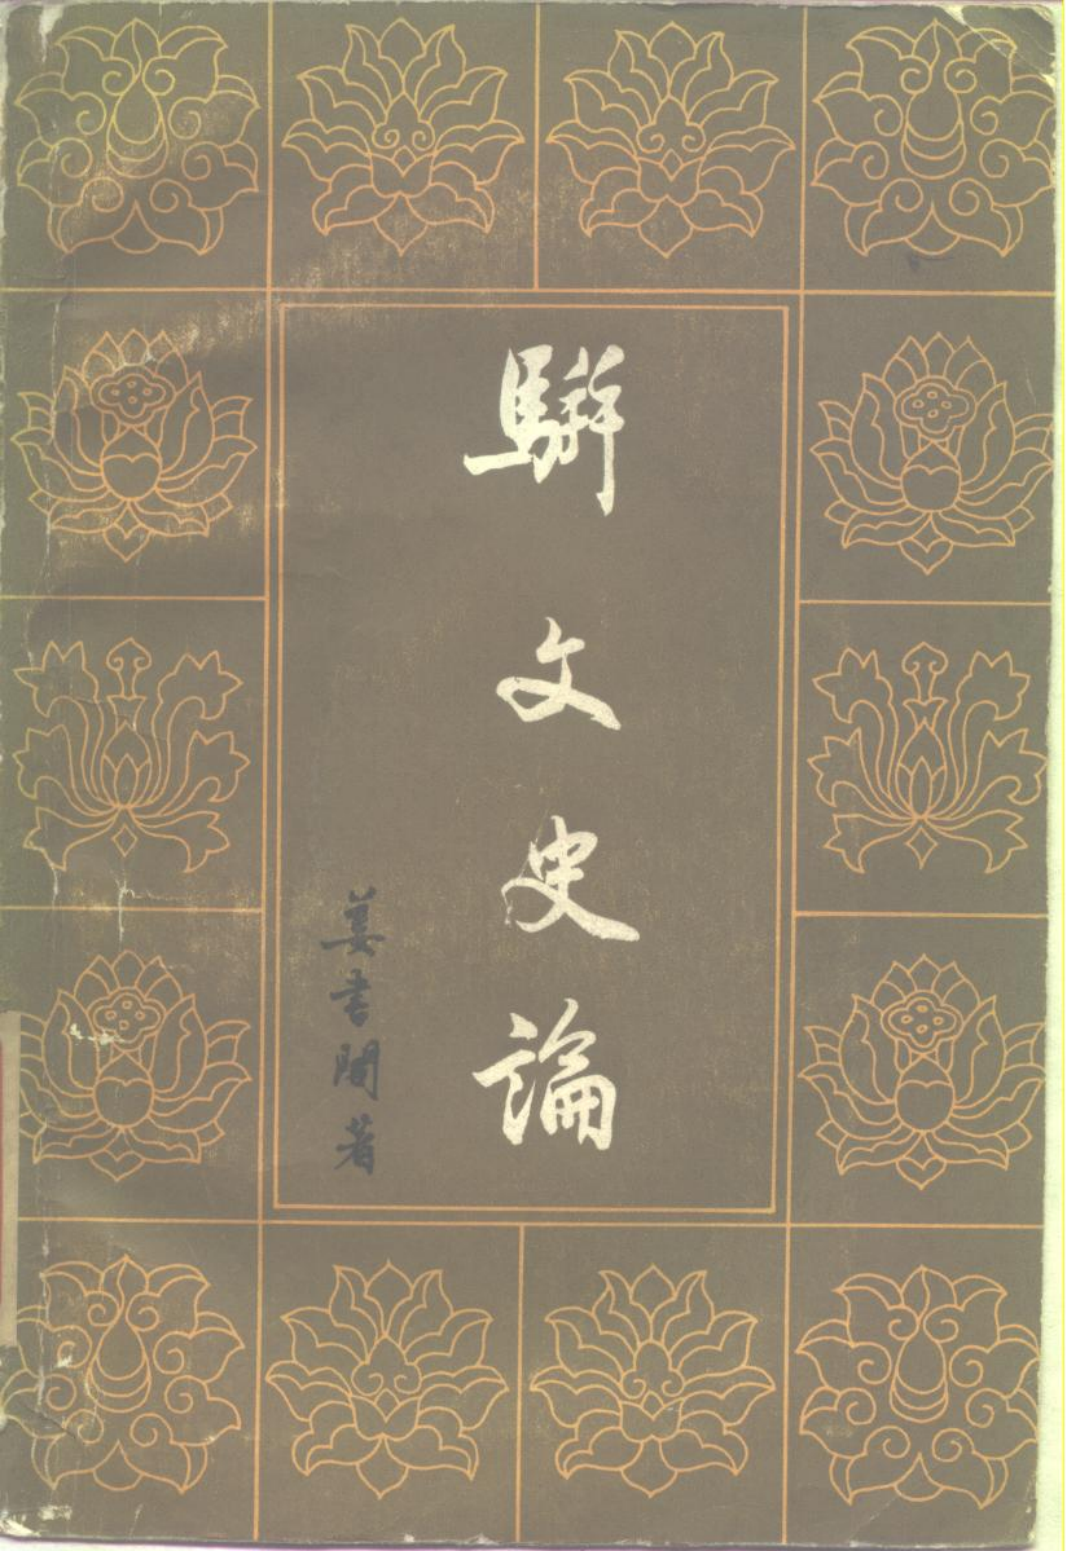 駢文史論
姜書閣著